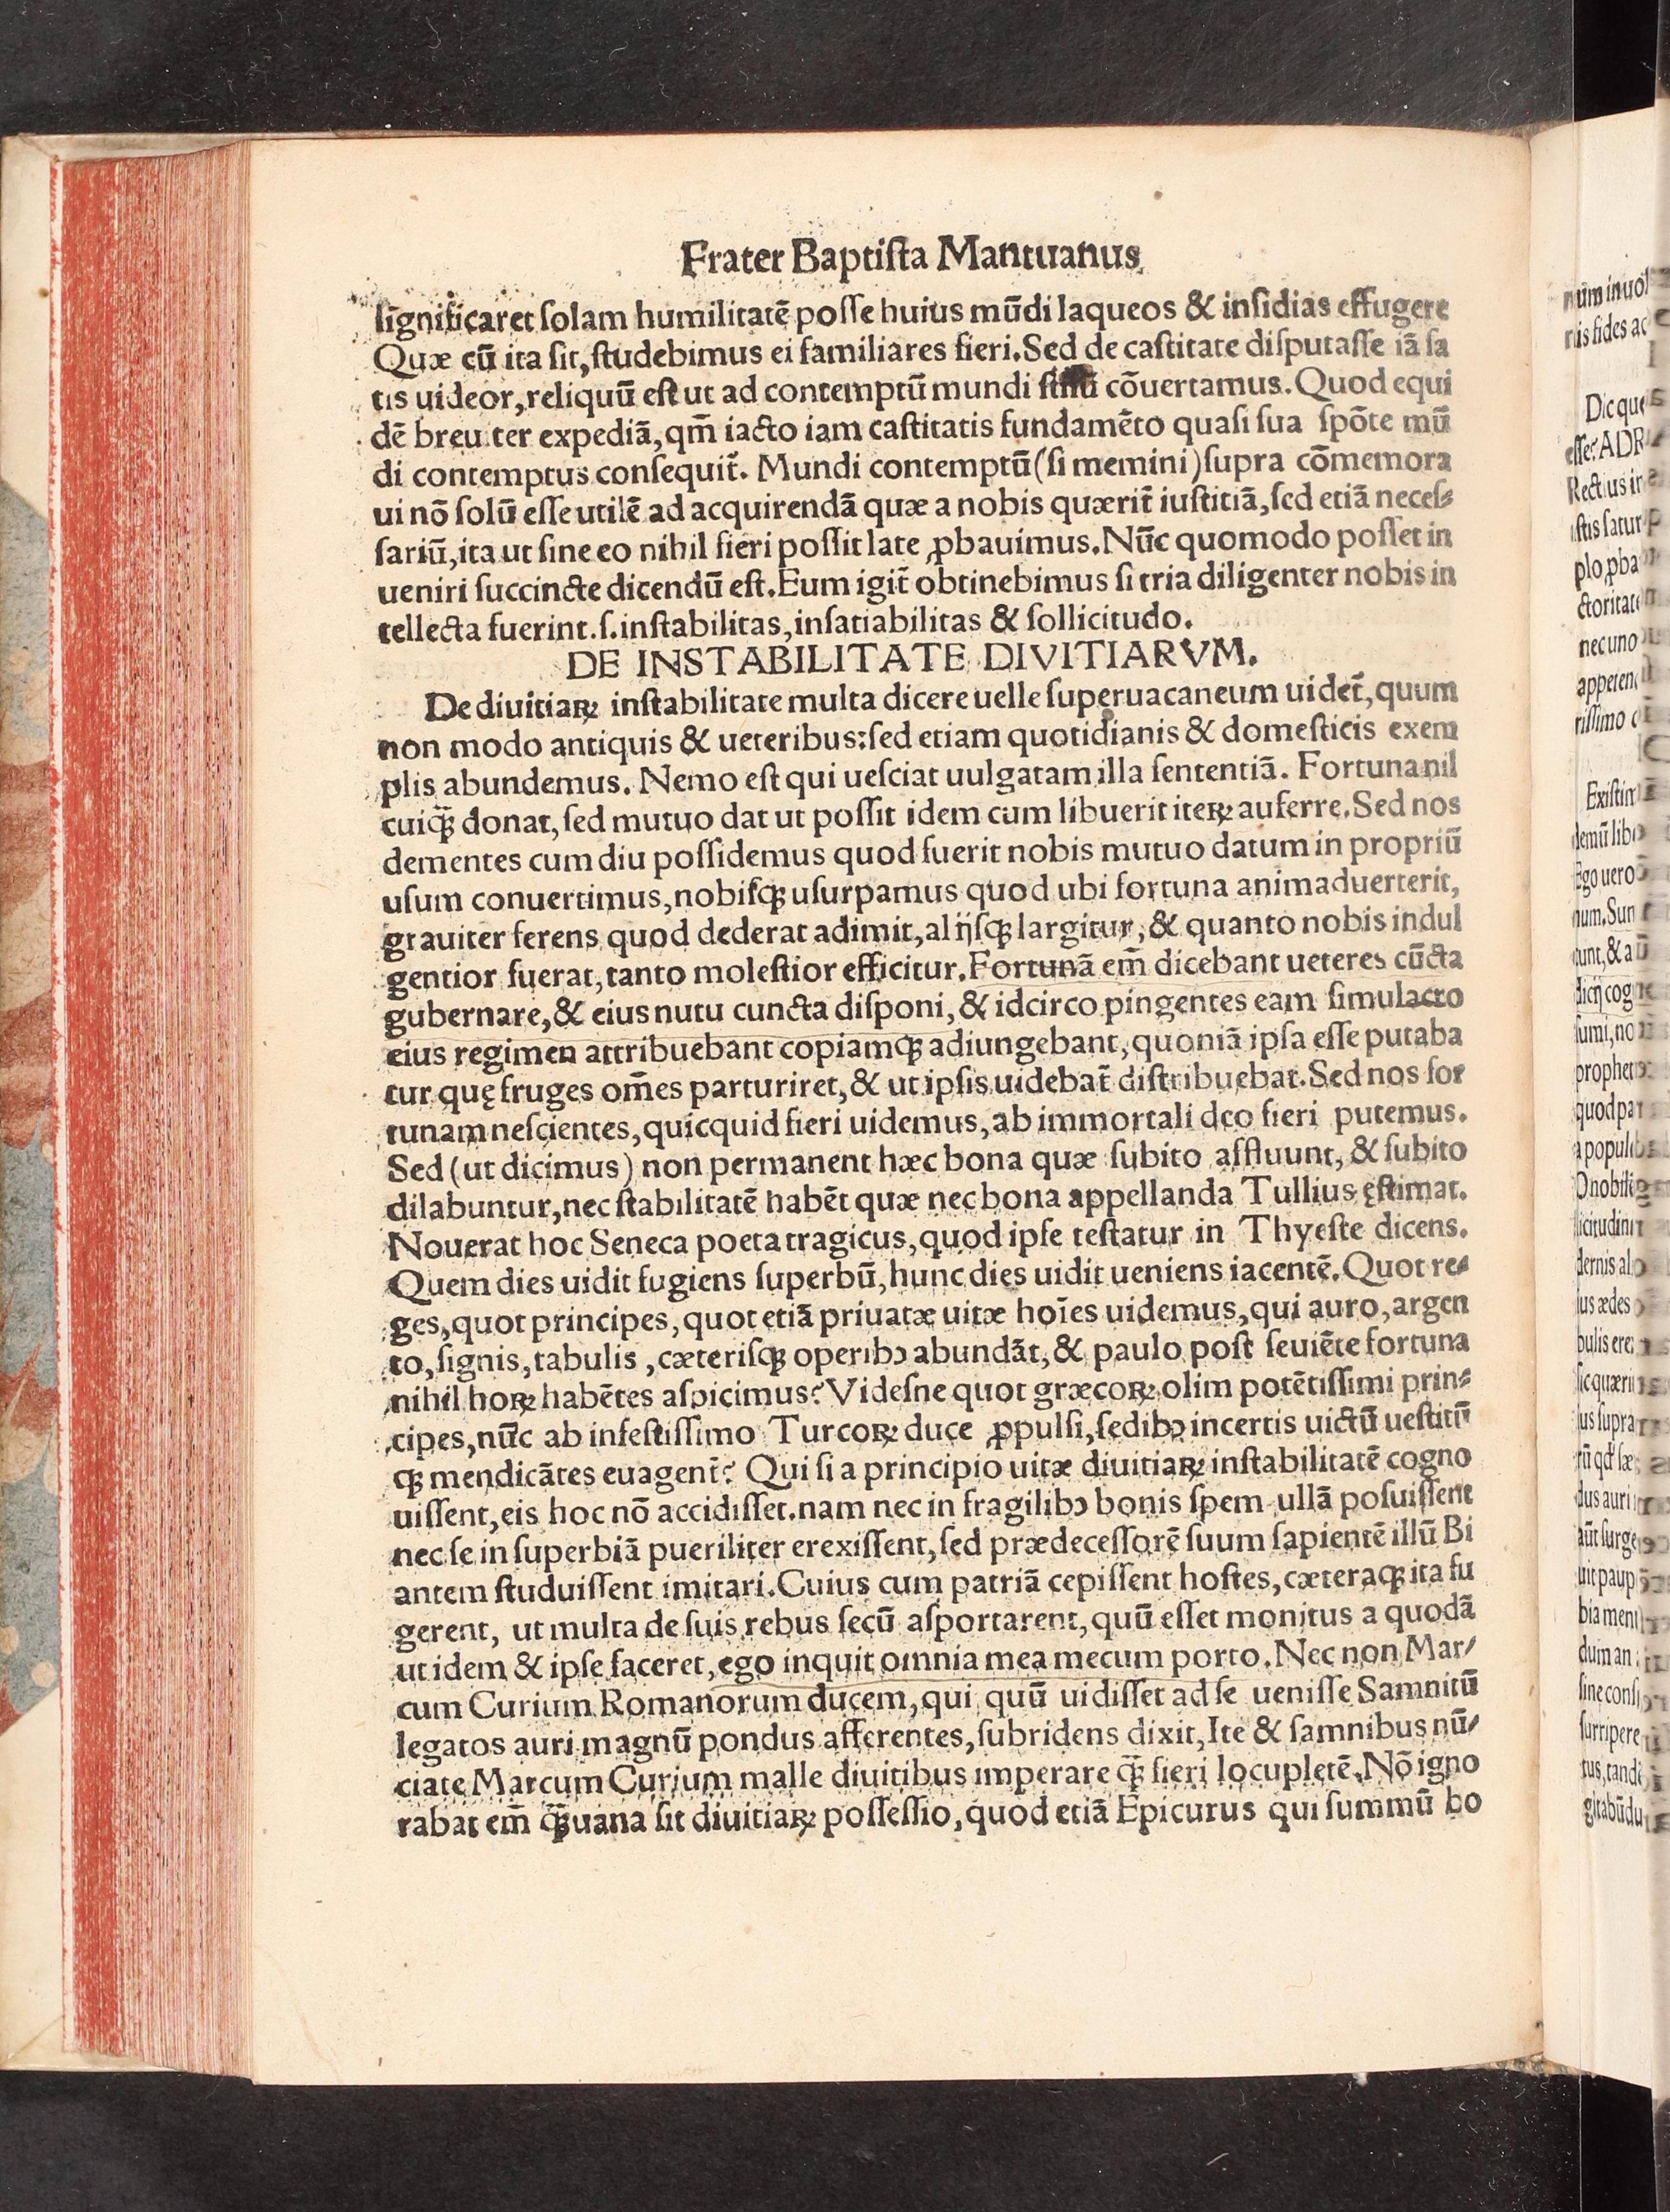 Frater Baptiſta Mantuanus
ſignificaret ſolam humilitatē poſſe huius mūdi laqueos & inſidias effugere
Quæ cū ita ſit, ſtudebimus ei familiares fieri. Sed de caſtitate diſputaſſe iā ſa
tis uideor, reliquū eſt ut ad contemptū mundi cōuertamus. Quod equi
dē breuiter expediā, qm̄ iacto iam caſtitatis fundamēto quaſi ſua ſpōte mū
di contemptus conſequit̃. Mundi contemptū (ſi memini) ſupra cōmemora
ui nō ſolū eſſe utilē ad acquirendā quæ a nobis quærit̃ iuſtitiā, ſed etiā neceſ⸗
ſariū, ita ut ſine eo nihil fieri poſſit late ꝓbauimus. Nūc quomodo poſſet in
ueniri ſuccincte dicendū eſt. Eum igit̃ obtinebimus ſi tria diligenter nobis in
tellecta fuerint .ſ. inſtabilitas, inſatiabilitas & ſollicitudo.
DE INSTABILITATE DIVITIARVM.
De diuitiaꝝ inſtabilitate multa dicere uelle ſuperuacaneum uidet̃, quum
non modo antiquis & ueteribus: ſed etiam quotidianis & domeſticis exem
plis abundemus. Nemo eſt qui ueſciat uulgatam illa ſententiā. Fortuna nil
cuiꝙ̄ donat, ſed mutuo dat ut poſſit idem cum libuerit iteꝝ auferre. Sed nos
dementes cum diu poſſidemus quod fuerit nobis mutuo datum in propriū
uſum conuertimus, nobiſꝙ uſurpamus quod ubi fortuna animaduerterit,
grauiter ferens quod dederat adimit, alijſꝙ largitur, & quanto nobis indul
gentior fuerat, tanto moleſtior efficitur. Fortunā em̄ dicebant ueteres cūcta
gubernare, & eius nutu cuncta diſponi, & idcirco pingentes eam ſimulacro
eius regimen attribuebant copiamꝙ adiungebant, quoniā ipſa eſſe putaba
tur quę fruges om̄es parturiret, & ut ipſis uidebat̃ diſtribuebat. Sed nos for
tunam neſcientes, quicquid fieri uidemus, ab immortali deo fieri putemus.
Sed (ut dicimus) non permanent hæc bona quæ ſubito affluunt, & ſubito
dilabuntur, nec ſtabilitatē habēt quæ nec bona appellanda Tullius ęſtimat.
Nouerat hoc Seneca poeta tragicus, quod ipſe teſtatur in Thyeſte dicens.
Quem dies uidit fugiens ſuperbū, hunc dies uidit ueniens iacentē. Quot re⸗
ges, quot principes, quot etiā priuatæ uitæ hoīes uidemus, qui auro, argen
to, ſignis, tabulis, cæteriſꝙ operibꝰ abundāt, & paulo poſt ſeuiēte fortuna
nihil hoꝝ habētes aſpicimus? Videſne quot græcoꝝ olim potētiſſimi prin⸗
cipes, nūc ab infeſtiſſimo Turcoꝝ duce ꝓpulſi, ſedibꝰ incertis uictū ueſtitū
ꝙ mendicātes euagent̃? Qui ſi a principio uitæ diuitiaꝝ inſtabilitatē cogno
uiſſent, eis hoc nō accidiſſet. nam nec in fragilibꝰ bonis ſpem ullā poſuiſſent
nec ſe in ſuperbiā pueriliter erexiſſent, ſed prædeceſſorē ſuum ſapientē illū Bi
antem ſtuduiſſent imitari. Cuius cum patriā cepiſſent hoſtes, cæteraꝙ ita fu
gerent, ut multa de ſuis rebus ſecū aſportarent, quū eſſet monitus a quodā
ut idem & ipſe faceret, ego inquit omnia mea mecum porto. Nec non Mar⸗
cum Curium Romanorum ducem, qui quū uidiſſet ad ſe ueniſſe Samnitū
legatos auri magnū pondus afferentes, ſubridens dixit, Ite & ſamnibus nū⸗
ciate Marcum Curium malle diuitibus imperare ꝙ̄ fieri locupletē. Nō igno
rabat em̄ ꝙ̄ uana ſit diuitiaꝝ poſſeſſio, quod etiā Epicurus qui ſummū bo